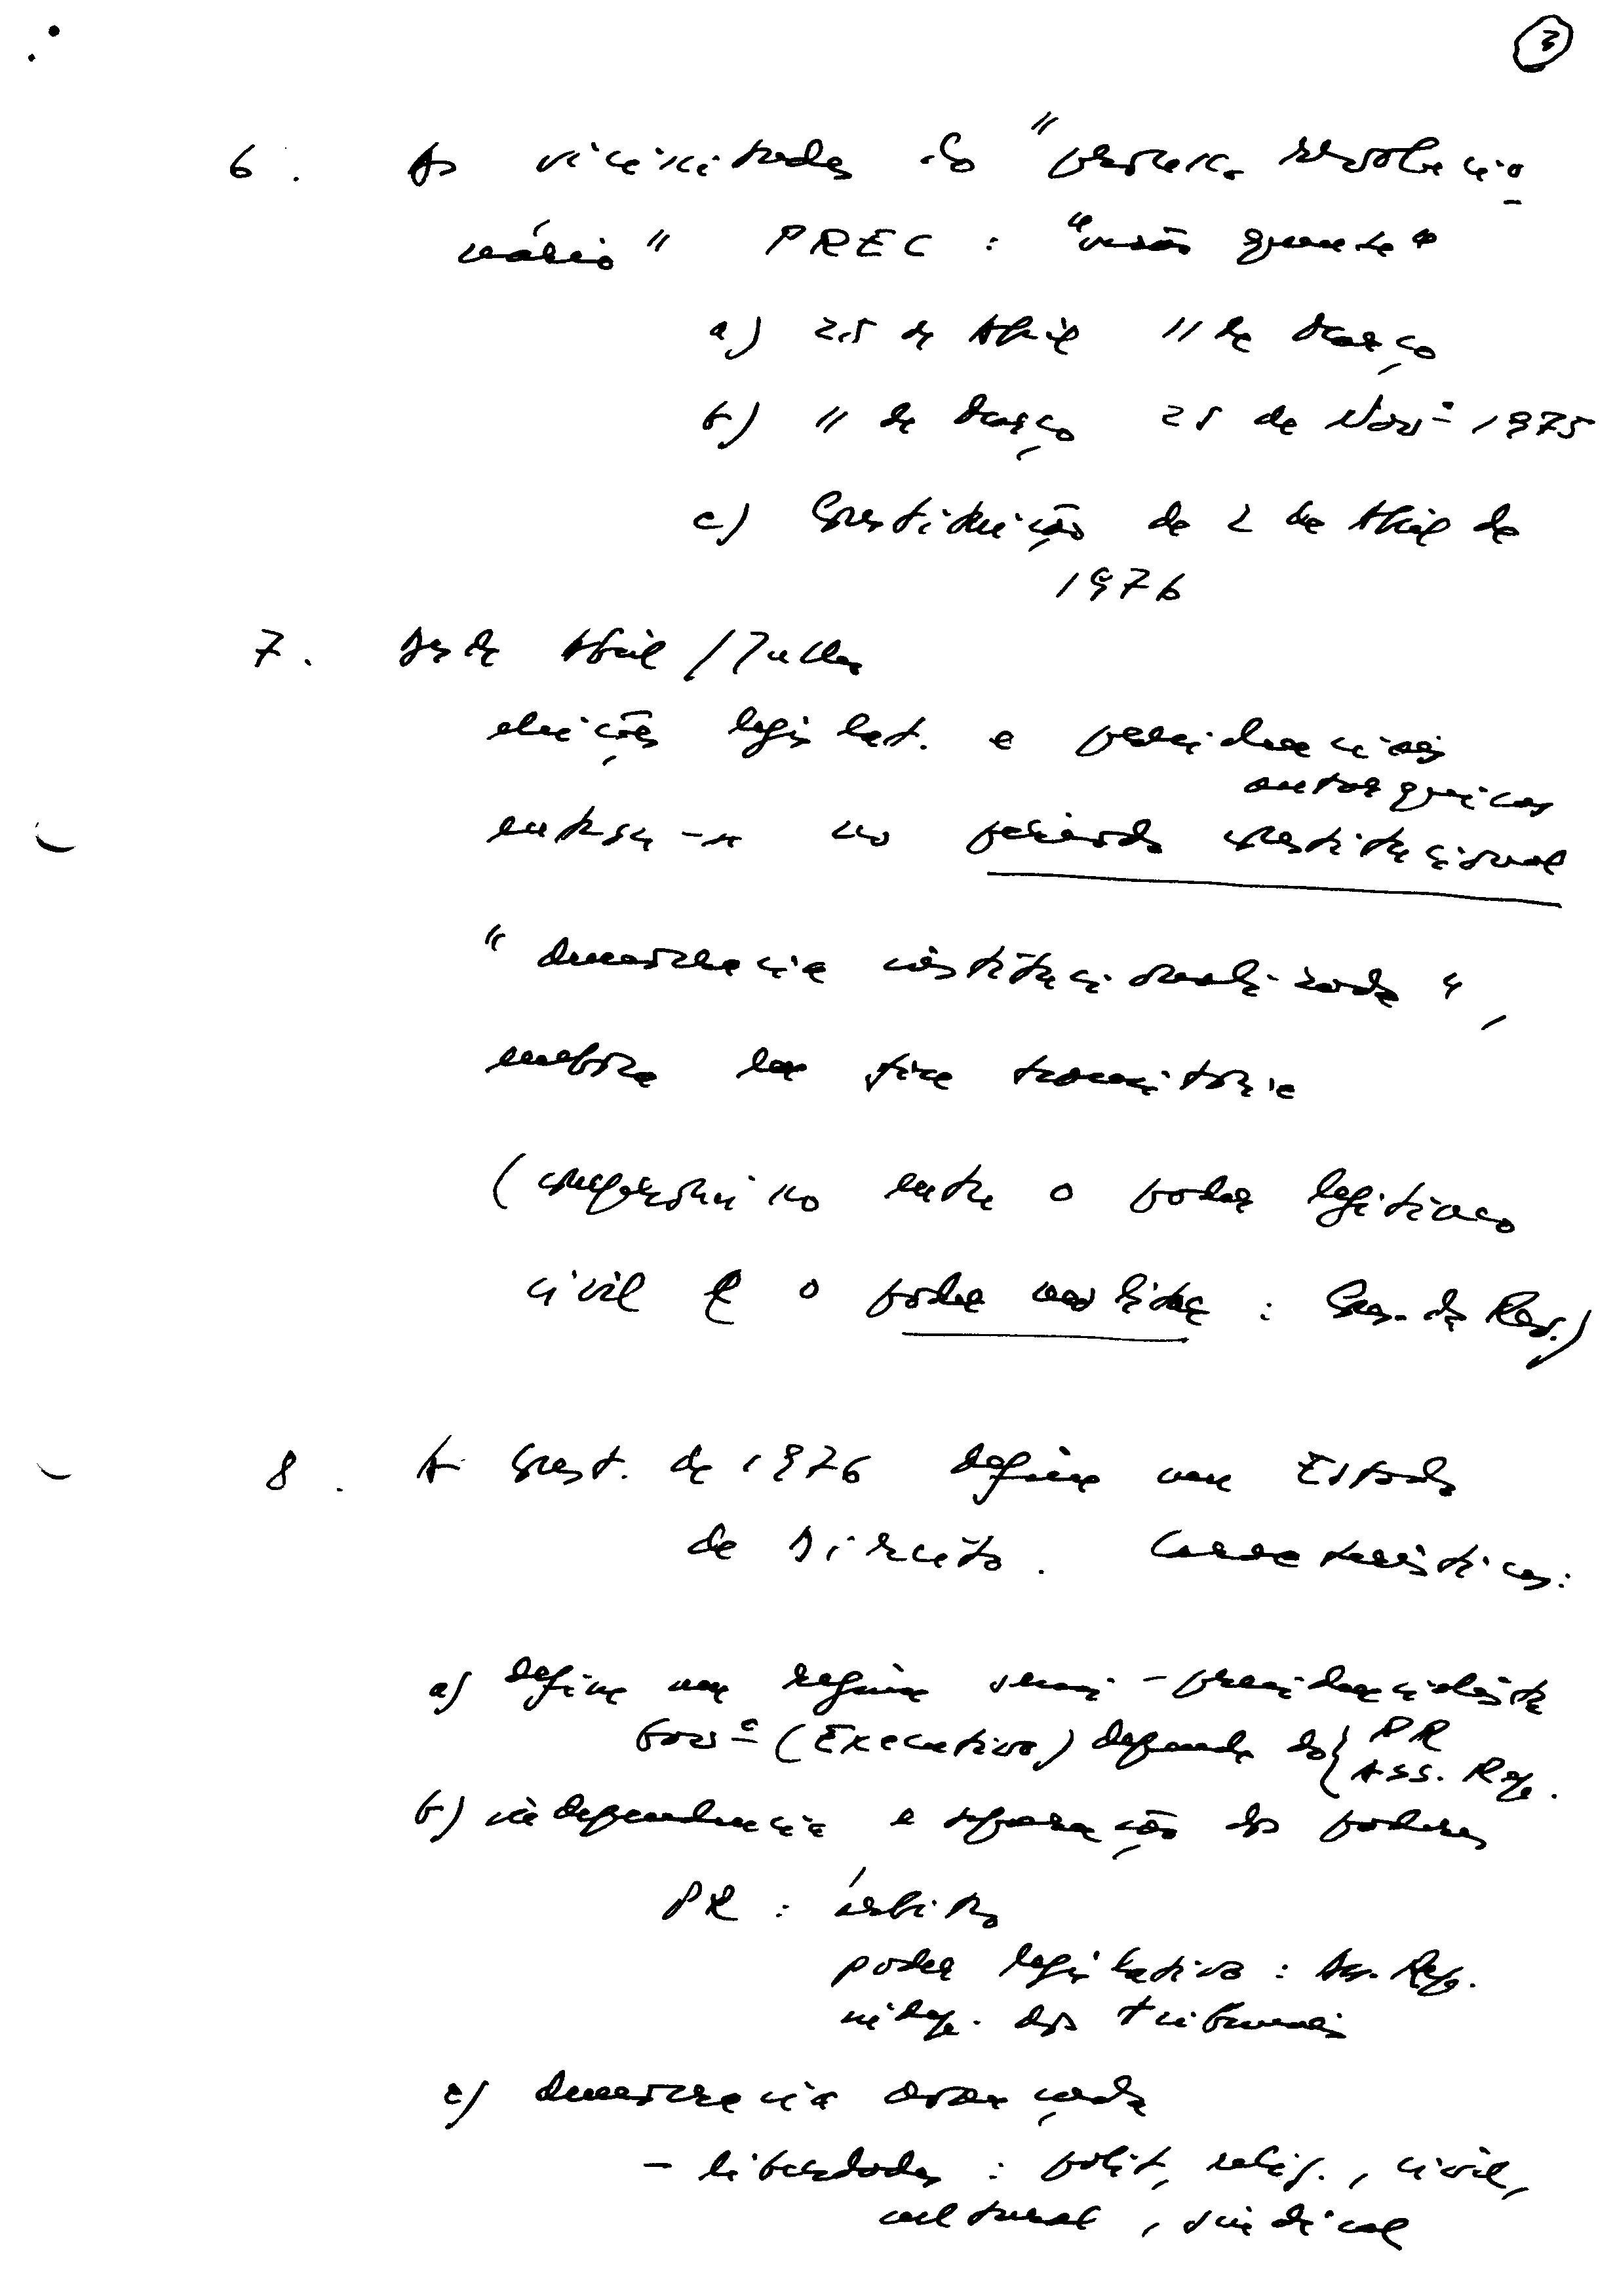 3
6. As vicissitudes do "processo revolucio-
nário" PREC: "verão quente"
a) 25 de Abril 11 de Março
b) 11 de Março 25 de Novº 1975
c) Constituição de 2 de Abril de
1976
7. Desde Abril / Julho
eleições legislat. e presidenciais
autárquicas
entrou-se no período constitucional
"democracia constitucionalizada",
embora em fase transitória
(compromisso entre o poder legítimo
civil e o poder militar: Cons. da Rev.)
8. A Const. de 1976 define um Estado
de Direito. Características:
a) define um regime semi-presidencialista
Govº (Executivo) depende do { PR
Ass. Rep.
b) independência e separação dos poderes
PR: árbitro
poder legislativo: As. Rep.
indep. dos tribunais
c) democracia avançada
- liberdades: polit, relig., civil,
cultural, sindical